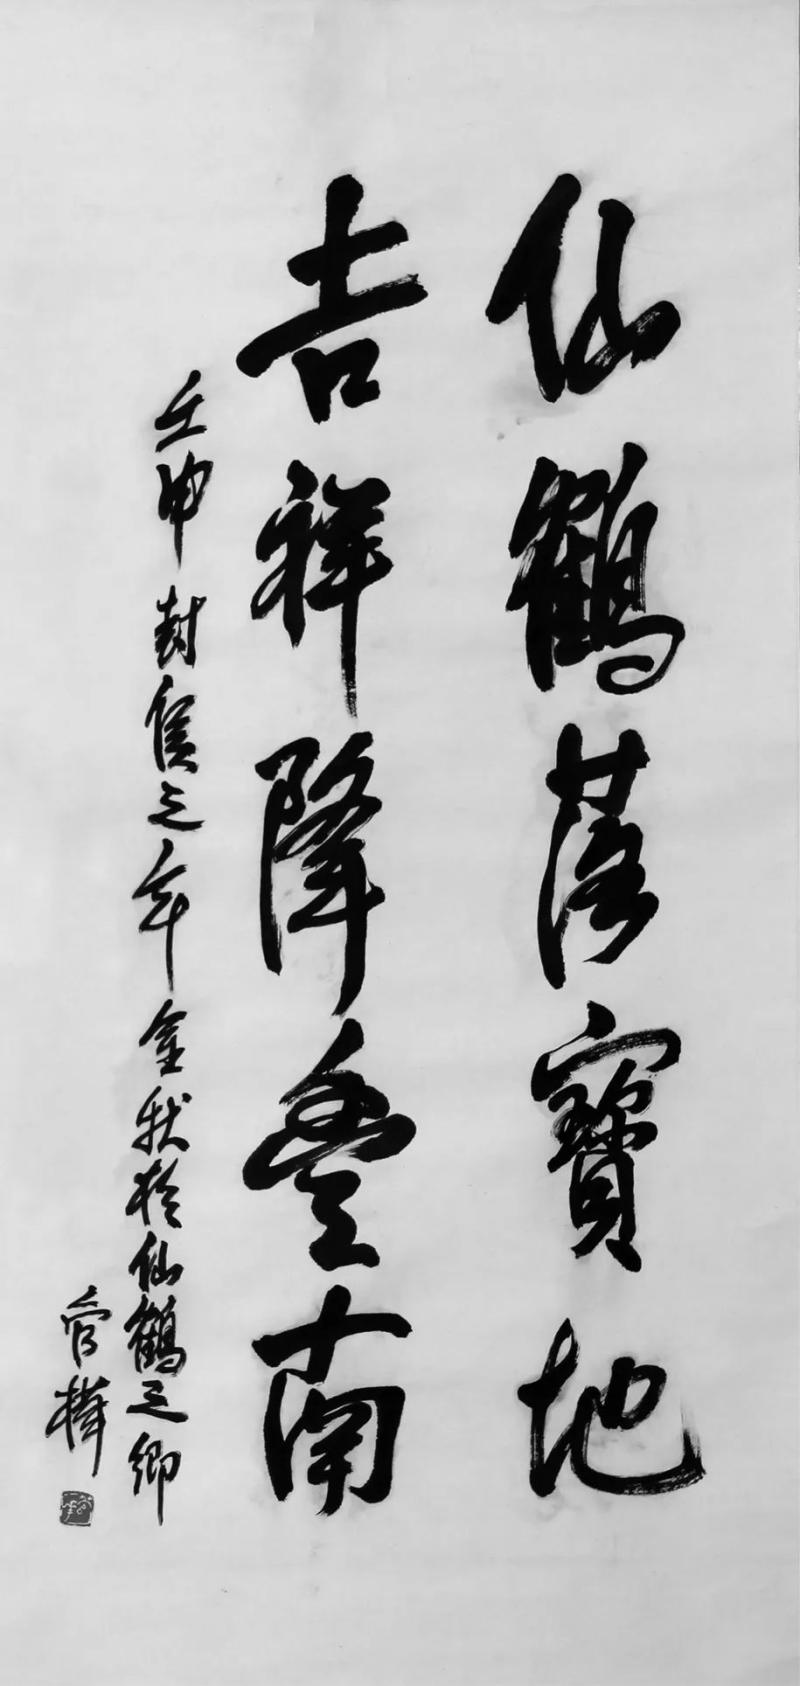 仙鶴落寶地
吉祥降豊南
壬申封侯之年金秋於仙鶴之鄉
管樺